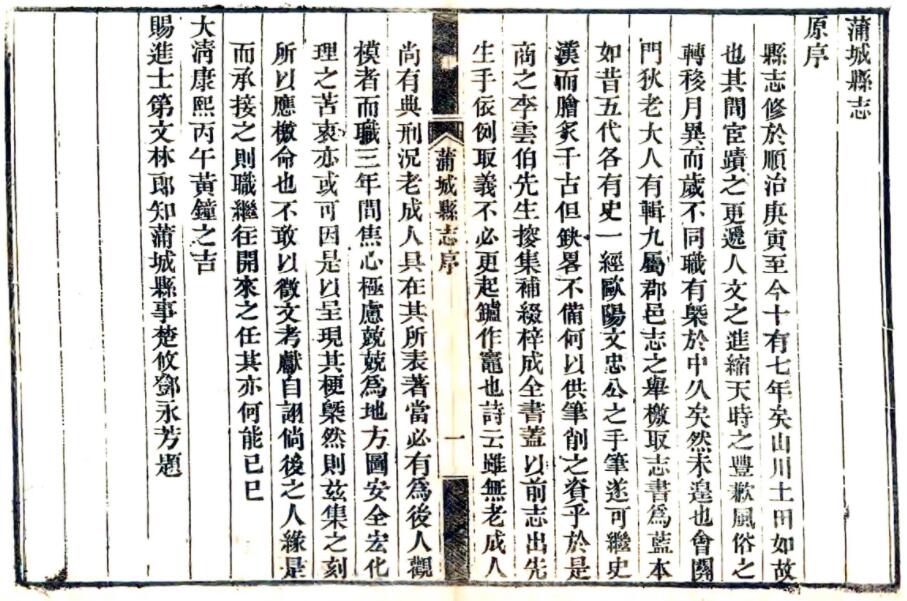 蒲城縣志
原序
縣志修於順治庚寅至今十有七年矣山川土田如故
也其間宦蹟之更遞人文之進縮天時之豐歉風俗之
轉移月異而歲不同職有槩於中久矣然未遑也會關
門狄老大人有輯九屬郡邑志之舉檄取志書爲藍本
如昔五代各有史一經歐陽文忠公之手筆遂可繼史
漢而膾炙千古但缺畧不備何以供筆削之資乎於是
商之李雲伯先生搜集補綴梓成全書蓋以前志出先
生手依例取義不必更起鑪作竈也詩云雖無老成人
蒲城縣志序
一
尚有典刑況老成人具在其所表著當必有爲後人觀
模者而職三年間焦心極慮兢兢爲地方圖安全宏化
理之苦衷亦或可因是以呈現其梗槩然則茲集之刻
所以應檄命也不敢以徵文考獻自詡倘後之人緣是
而承接之則職繼往開來之任其亦何能已巳
大淸康熙丙午黃鐘之吉
賜進士第文林郎知蒲城縣事楚攸鄧永芳題